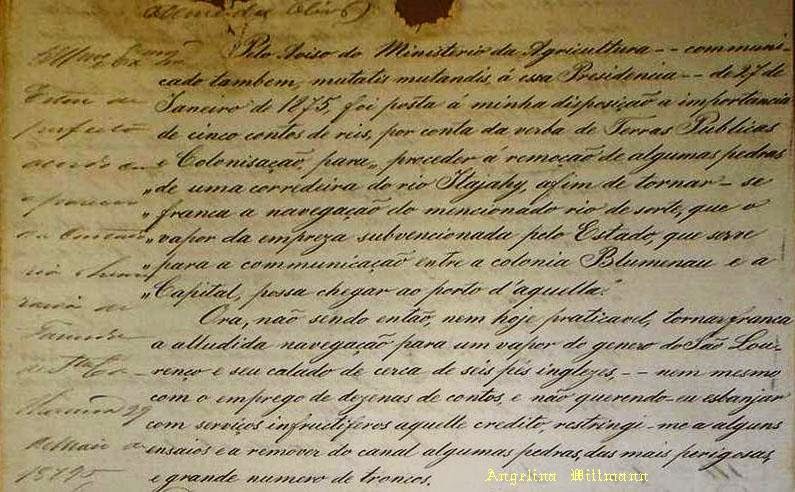 Almeida Oliv.ª)
Pelo Aviso do Ministerio da Agricultura -- communi-
cado tambem, mutatis mutandis, á essa Presidencia -- de 27 de
Janeiro de 1875, foi posta á minha disposição a importancia
de cinco contos de reis, por conta da verba de Terras Publicas
e Colonisação para „ proceder á remoção de algumas pedras
„ de uma corredeira do rio Itajahy, afim de tornar-se
„ franca a navegação do mencionado rio de sorte, que o
„ vapor da empreza subvencionada pelo Estado, que serve
„ para a communicação entre a colonia Blumenau e a
„ Capital, possa chegar ao porto d'aquella."
Ora, não sendo então, nem hoje praticavel, tornar franca
a alludida navegação para um vapor do genero do São Lou-
renço e seu calado de cerca de seis pés inglezes, -- nem mesmo
com o emprego de dezenas de contos, e não querendo-eu esbanjar
com serviços infructiferos aquelle credito, restringi-me a alguns
ensaios e a remover do canal algumas pedras, das mais perigosas,
e grande numero de troncos.
Estou de
perfeito
accordo
o parecer
da Conta-
ria
de
Fazenda
de Sta Ca-
tharina 29
de Maio de
Angelina Wittmann